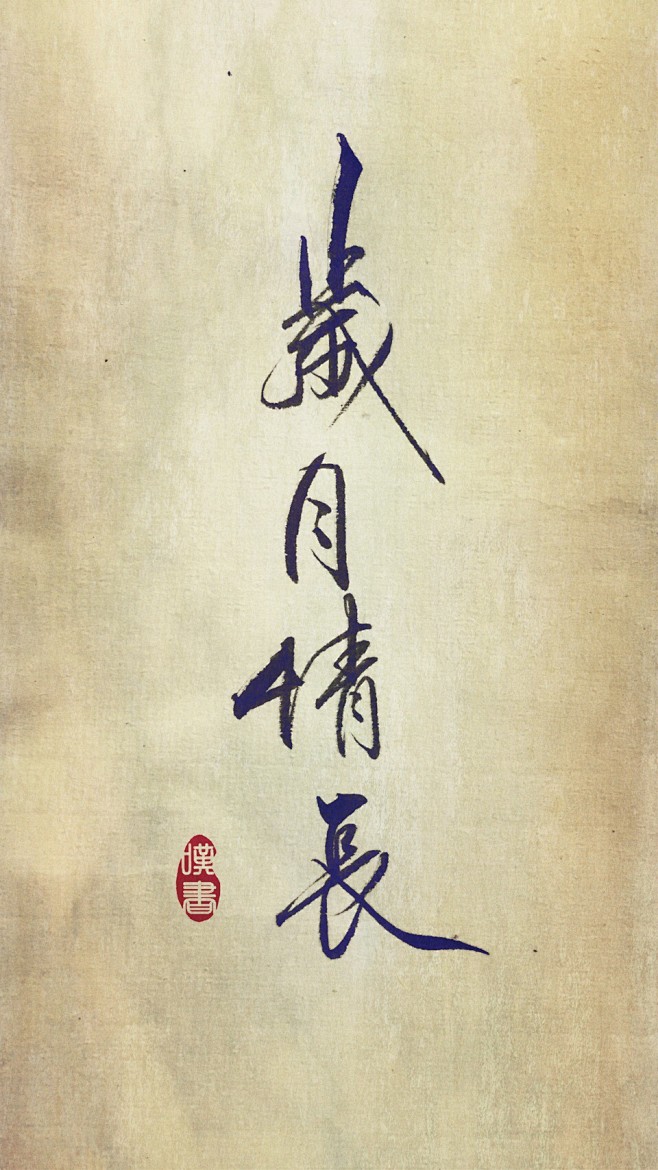 歲月情長
嘆書